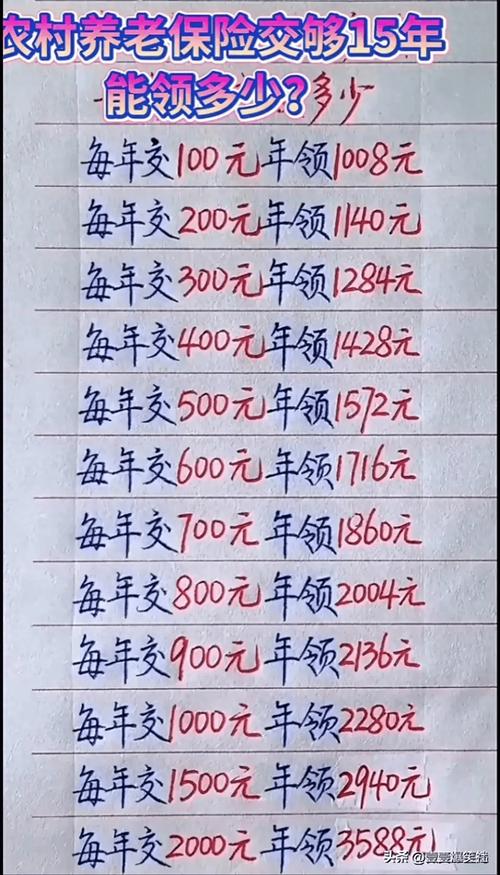 农村养老保险交够15年
能领多少?
多少
每年交100元年领1008元
每年交200元年领1140元
每年交300元年领1284元
每年交400元年领1428元
每年交500元年领1572元
每年交600元年领1716元
每年交700元年领1860元
每年交800元年领2004元
每年交900元年领2136元
每年交1000元年领2280元
每年交1500元年领2940元
每年交2000元年领3588元
头条 @